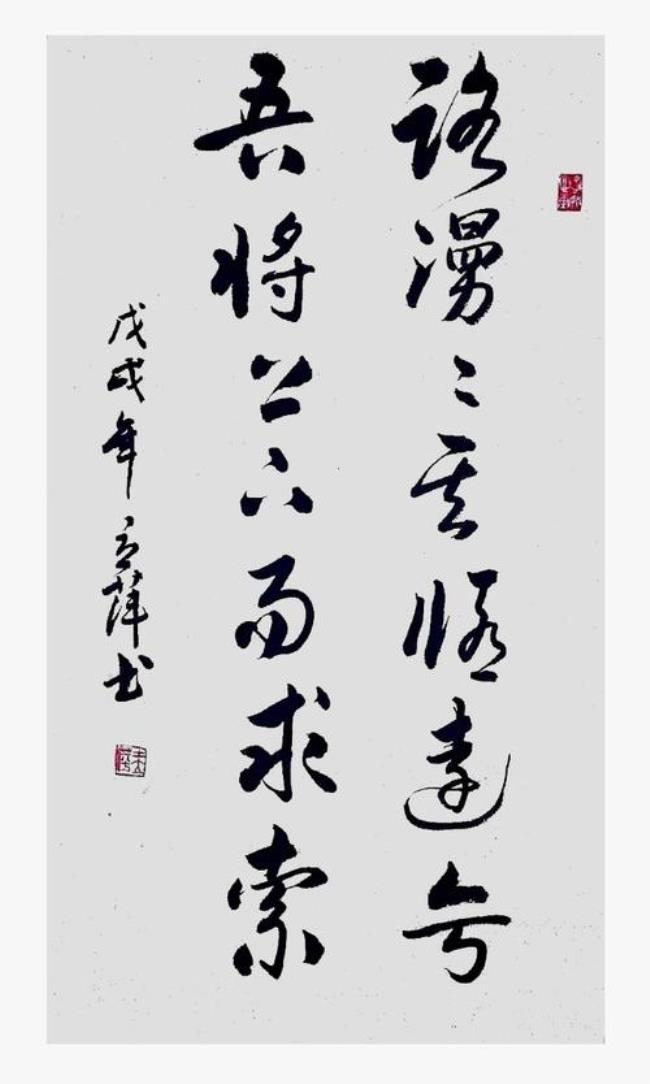 路漫〻其修遠兮
吾将上下而求索
戊戌年立萍书